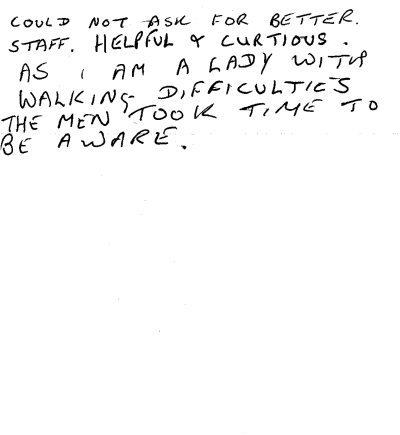 COULD NOT ASK FOR BETTER.
STAFF. HELPFUL & CURTIOUS.
AS I AM A LADY WITH
WALKING DIFFICULTIES
THE MEN TOOK TIME TO
BE AWARE.